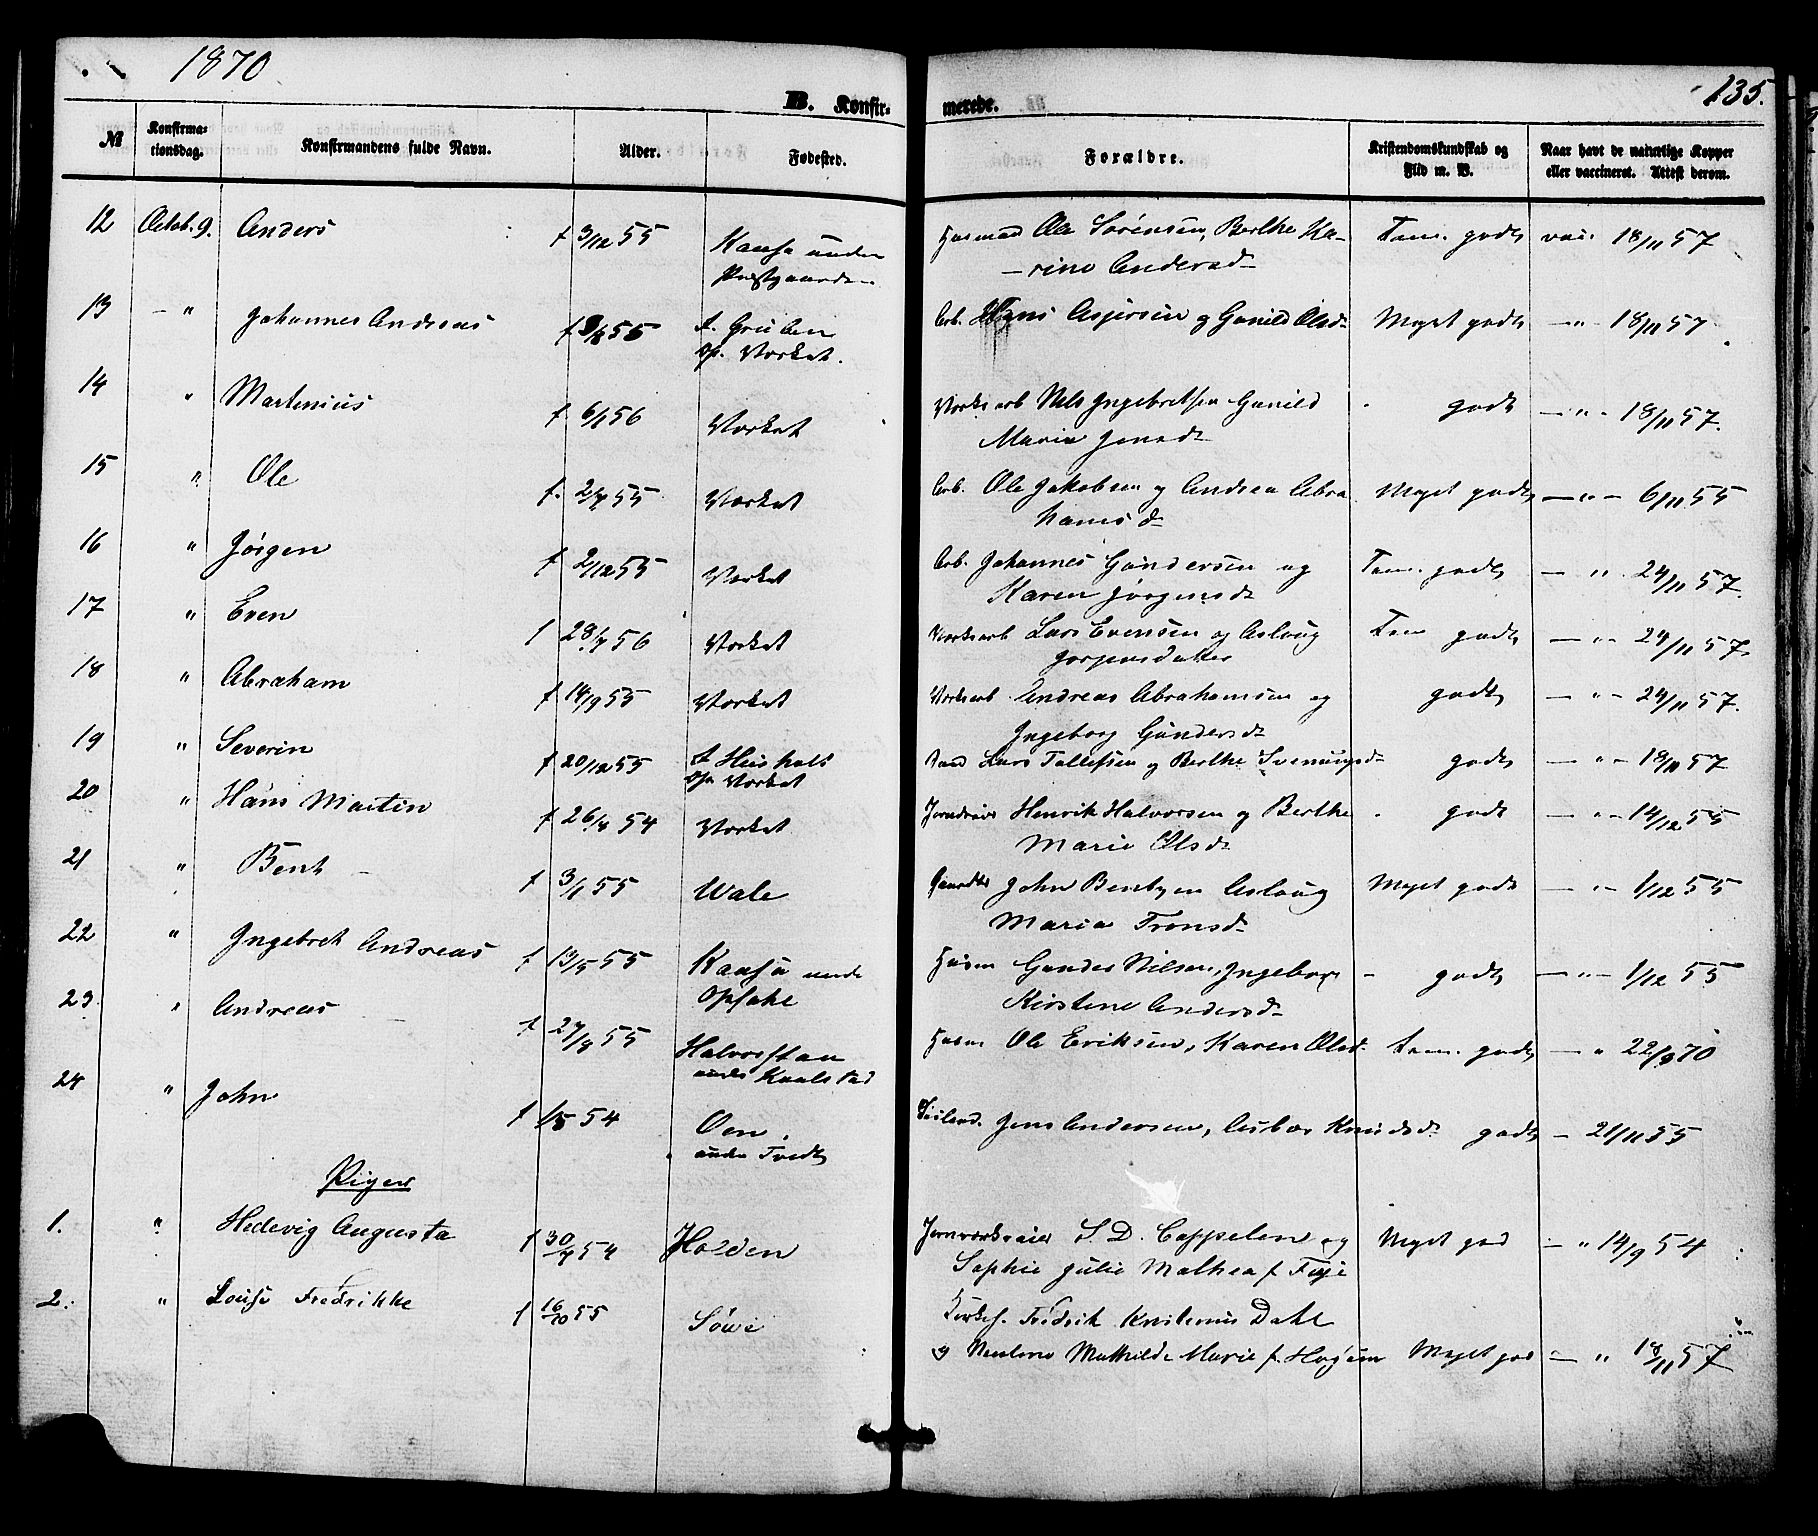 1870
135.
B. Konfir-
merede.
№ Konfirma-
tionsdag. Konfirmandens fulde Navn. Alder. Fødested. Forældre. Kristendomskundskab og
Flid m. V. Naar havt de naturlige Kopper
eller vaccineret. Attest derom.
12 Octob. 9. Anders f 3/12 55 Kaasa under Husmad Ole Sørensen, Berthe Ka- Tem. godt vac. 18/11 57
Præstgaarden rine Andersd
13 — " Johannes Andreas f 55 f. Gruben Arb. Hans Asjersen og Gunild Olsd Meget godt — " — 18/11 57
op. Værket.
14 " Martinius f. 6/1 56 Værket Værksarb Nels Ingebretsen Gunild godt — " — 18/11 57.
Maria Jensd
15 " Ole f. 55 Værket Arb. Ole Jakobsen og Andrea Abra Meget godt — " — 6/11 55
hamsd
16 " Jörgen f 2/12 55 Værket Arb. Johannes Gundersen og Tem. godt — " 24/11 57.
Karen Jörgensd
17 " Even f 28/7 56 Værket Værksarb Lars Evensen og Aslaug Tem godt — " — 24/11 57.
Jorgensdatter
18 " Abraham f. 14/9 55 Værket Værksarb Andreas Abrahamsen og godt — " — 24/11 57.
Ingeborg Gundersd
19 " Severin f 20/12 55 f Heisholt Lars Tollefsen og Berthe Svenungsd godt — " — 18/11 57
op Værket
20 " Hans Martin f 26/4 54 Værket Henrik Halvorsen og Berthe godt — " — 14/12 55
Marie Olsd
21 " Bent f 3/1 55 Wale Gaardbr John Bentsen Aslaug Meget godt — " — 1/12 55
Maria Tronsd
22 " Ingebret Andreas f 13/5 55 Kaasa under Husm Gunder Nilsen, Ingeborg godt — " — 1/12 55
Opsahl Kirstine Andersd
23. " Andreas f 27/8 55 Halvorstan Husm Ole Eriksen, Karen Olsd. tem. godt — " 22/9 70
under Kaalstad
24 " John f 54 Oen, Jens Andersen, Asbør Knudsd. godt — 21/11 55
under Tvedt
Piger
1. " Hedevig Augusta f 30/7 54 Holden Jernværkseier S. D. Cappelen og Meget god — " 14/9 54
Sophie Julie Mathea f.
2. " Louise Fredrikke f 16/10 55 Söve Kirkes. Fredrik Dahl
og Mathilde Marie f. Meget god — " 18/11 57